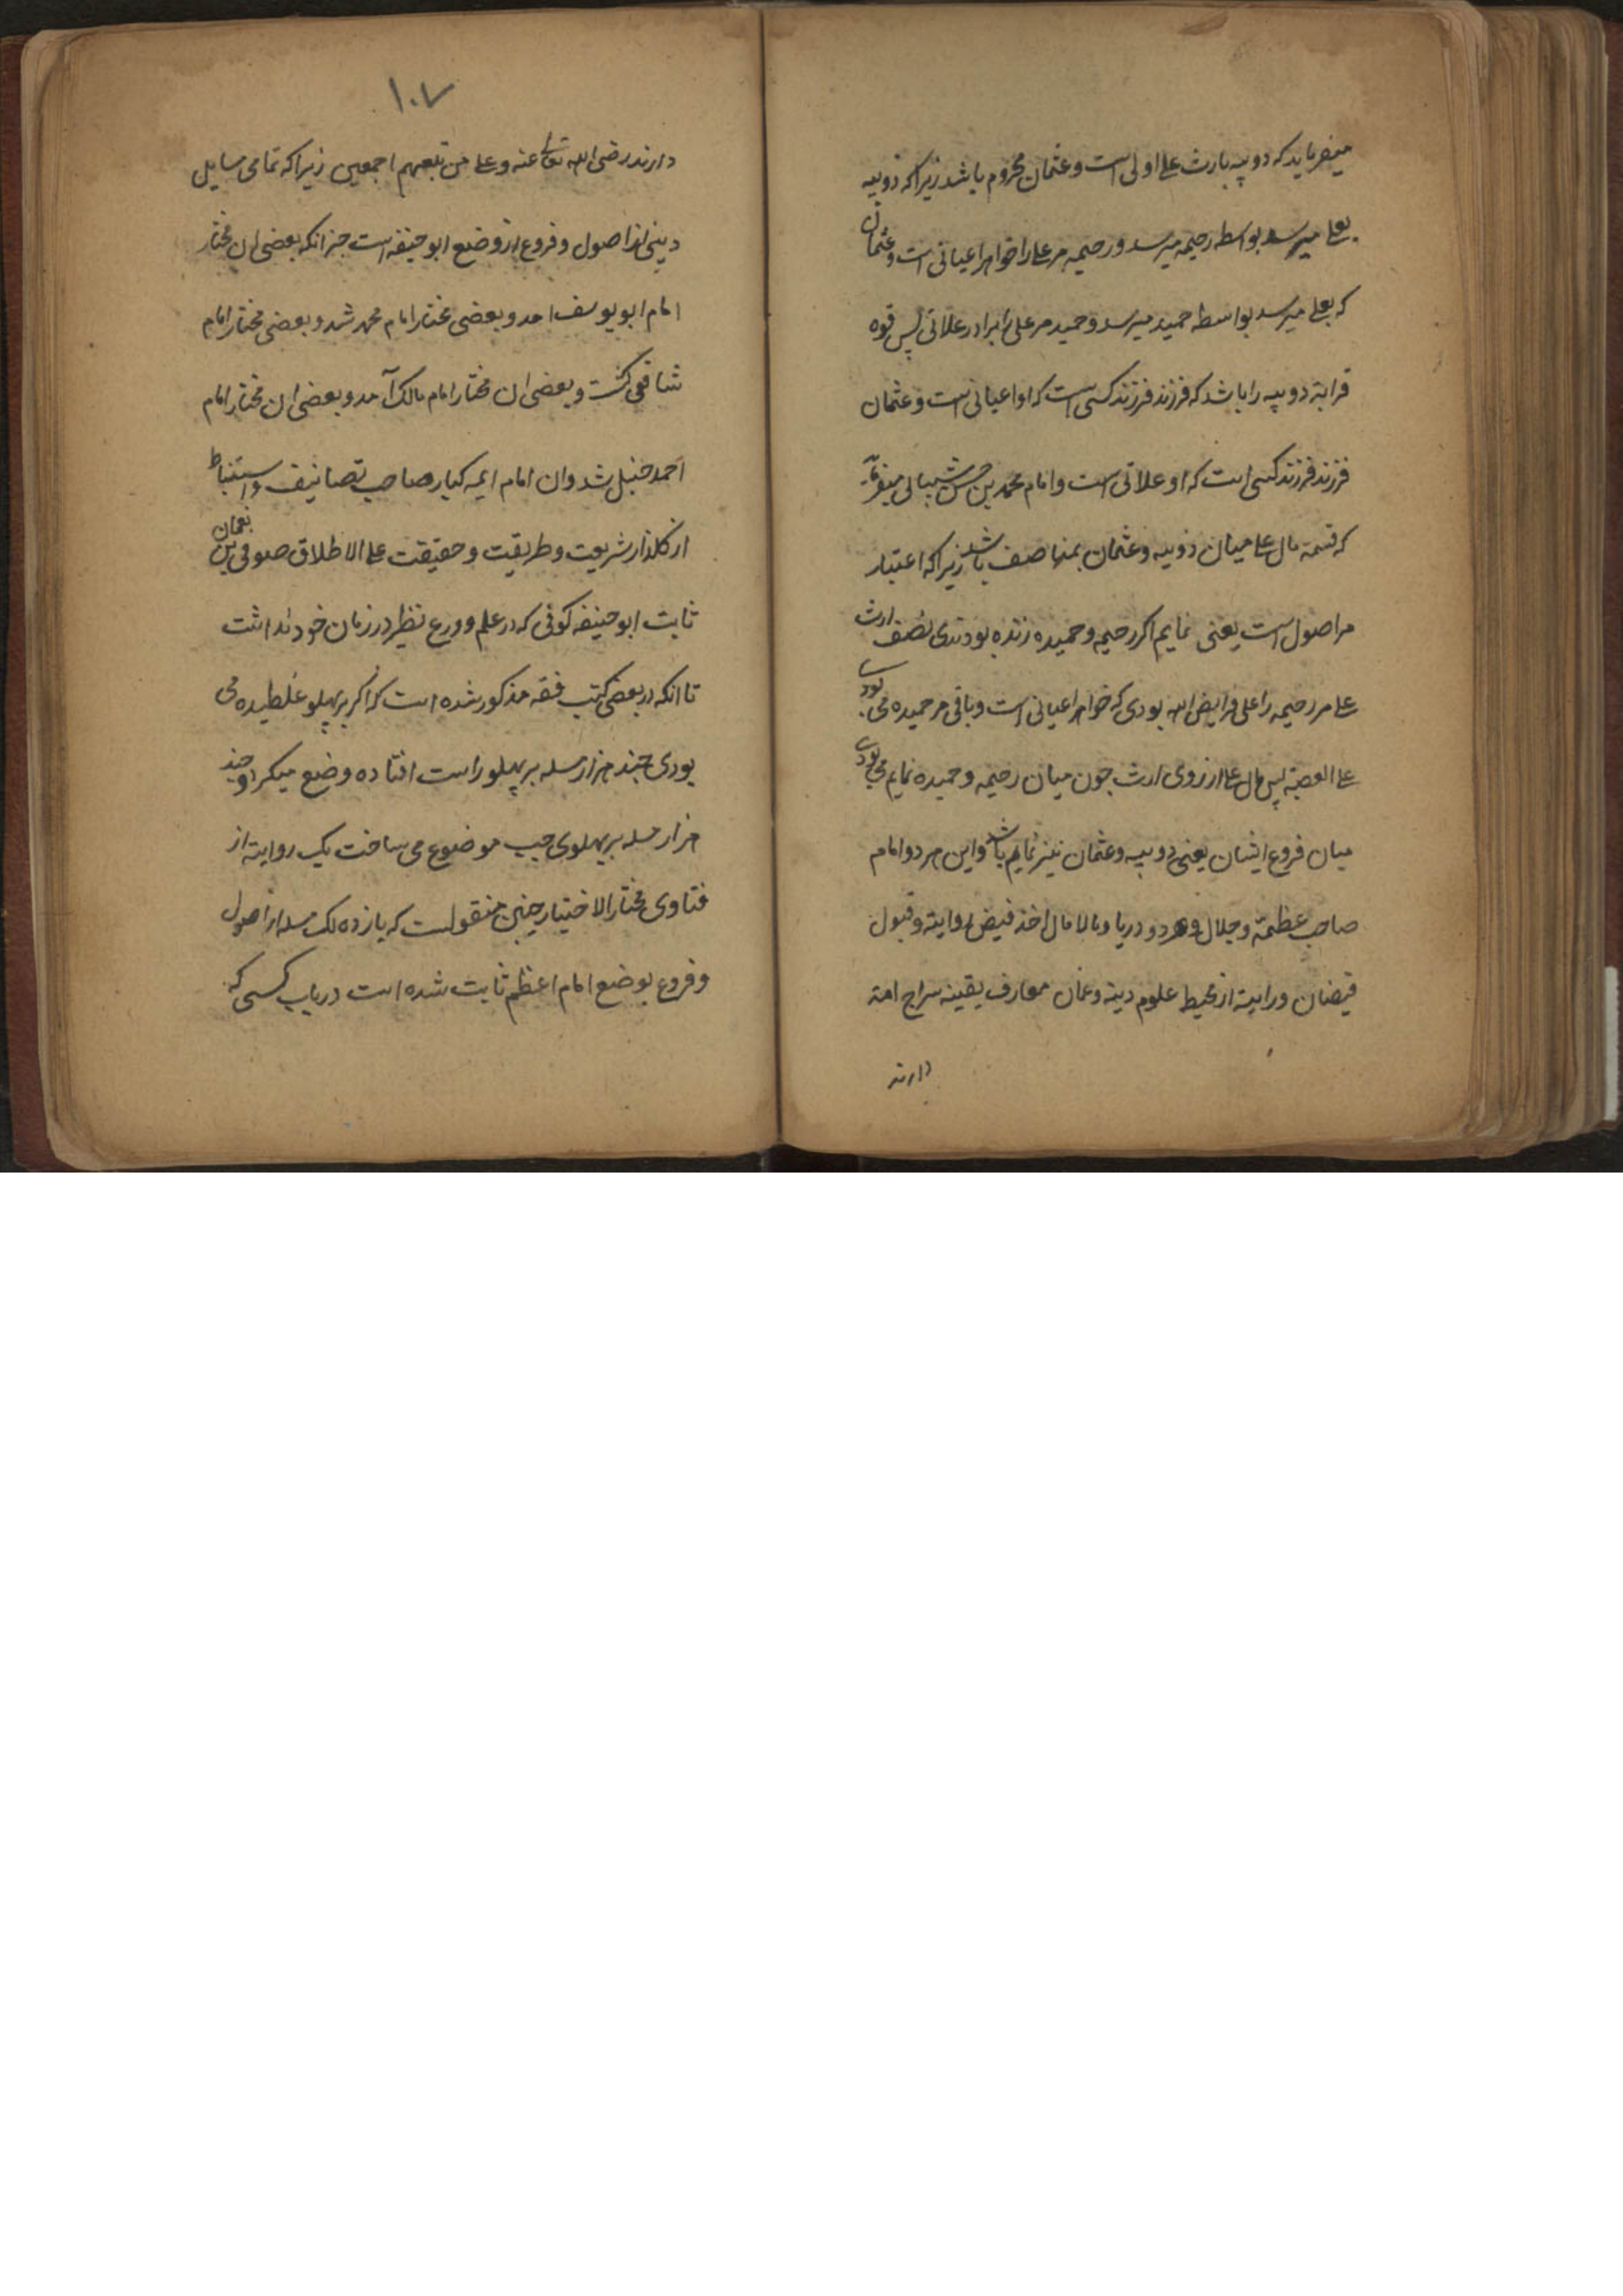 میفرماید که دوبیه بارث علی اولی است وعثمان محروم باشد زیراکه ذوبیه
بعلی میرسد بواسطه رحیمه میرسد ورحیمه مرعلی را خواهر اعیانی است وعثمان
که بعلی میرسد بواسطه حمید میرسد وحمید مرعلی را برادر علاتی پس قوه
قرابة دوبیه را باشد که فرزند فرزند کسی است که او اعیانی است وعثمان
فرزند فرزند کسی است که او علاتی است وامام محمد بن حسن شیبانی میفرماید
که قسمة مال علی میان ذوبیه وعثمان بمناصف باشد زیراکه اعتبار
مراصول است یعنی نمایم اکر رحیمه وحمیده زنده بودندی نصف ارث
علی مر رحیمه را علی فرایض الله بودی که خواهر اعیانی است وباقی مر حمیده می بودی
علی العصبة پس مال علی از روی ارث چون میان رحیمه وحمیده نمایم می بودی
میان فروع ایشان یعنی دوبیه وعثمان نیز نمایم باشد واین هر دو امام
صاحب عظمة وجلال وهر دو دریا ومالامال اخذ فیض روایته وقبول
فیضان ودرایته از محیط علوم دینه وعمان معارف یقینه سراج امة
دارند
۱۰۷
دارند رضی الله تعالی عنه وعلی من تبعهم اجمعین زیراکه تمامی مسایل
دینی از اصول وفروع از وضع ابوحنیفه است جز انکه بعضی ان مختار
امام ابویوسف امد وبعضی مختار امام محمد شد وبعضی مختار امام
شافعی کشت وبعضی ان مختار امام مالک آمد وبعضی ان مختار امام
احمد حنبل شد وان امام ایمه کبار صاحب تصانیف واستنباط
از کلذار شریعت وطریقت وحقیقت علی الاطلاق صوفی نعمان بن
ثابت ابوحنیفه کوفی که در علم وورع نظیر در زمان خود نداشت
تا انکه در بعضی کتب فقه مذکور شده است که اکر بر پهلو غلطیده می
بودی چند هزار مسله بر پهلو راست افتاده وضع میکرد وچند
هزار مسله بر پهلوی چپ موضوع می ساخت یک روایته از
فتاوی مختار الاختیار چنین منقولست که یازده لک مسله از اصول
وفروع بوضع امام اعظم ثابت شده است در باب کسی که